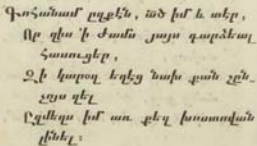 Գոհանամ ըզքէն, ած իմ և տէր,
Որ զիս ՚ի ժամս յայս գարձեալ
Հասուցեր,
Զի կարօղ եղէց նախ քան զըն_
չոյս ղել
Ըզմեղս իմ առ քեզ խոստովան
լինել: